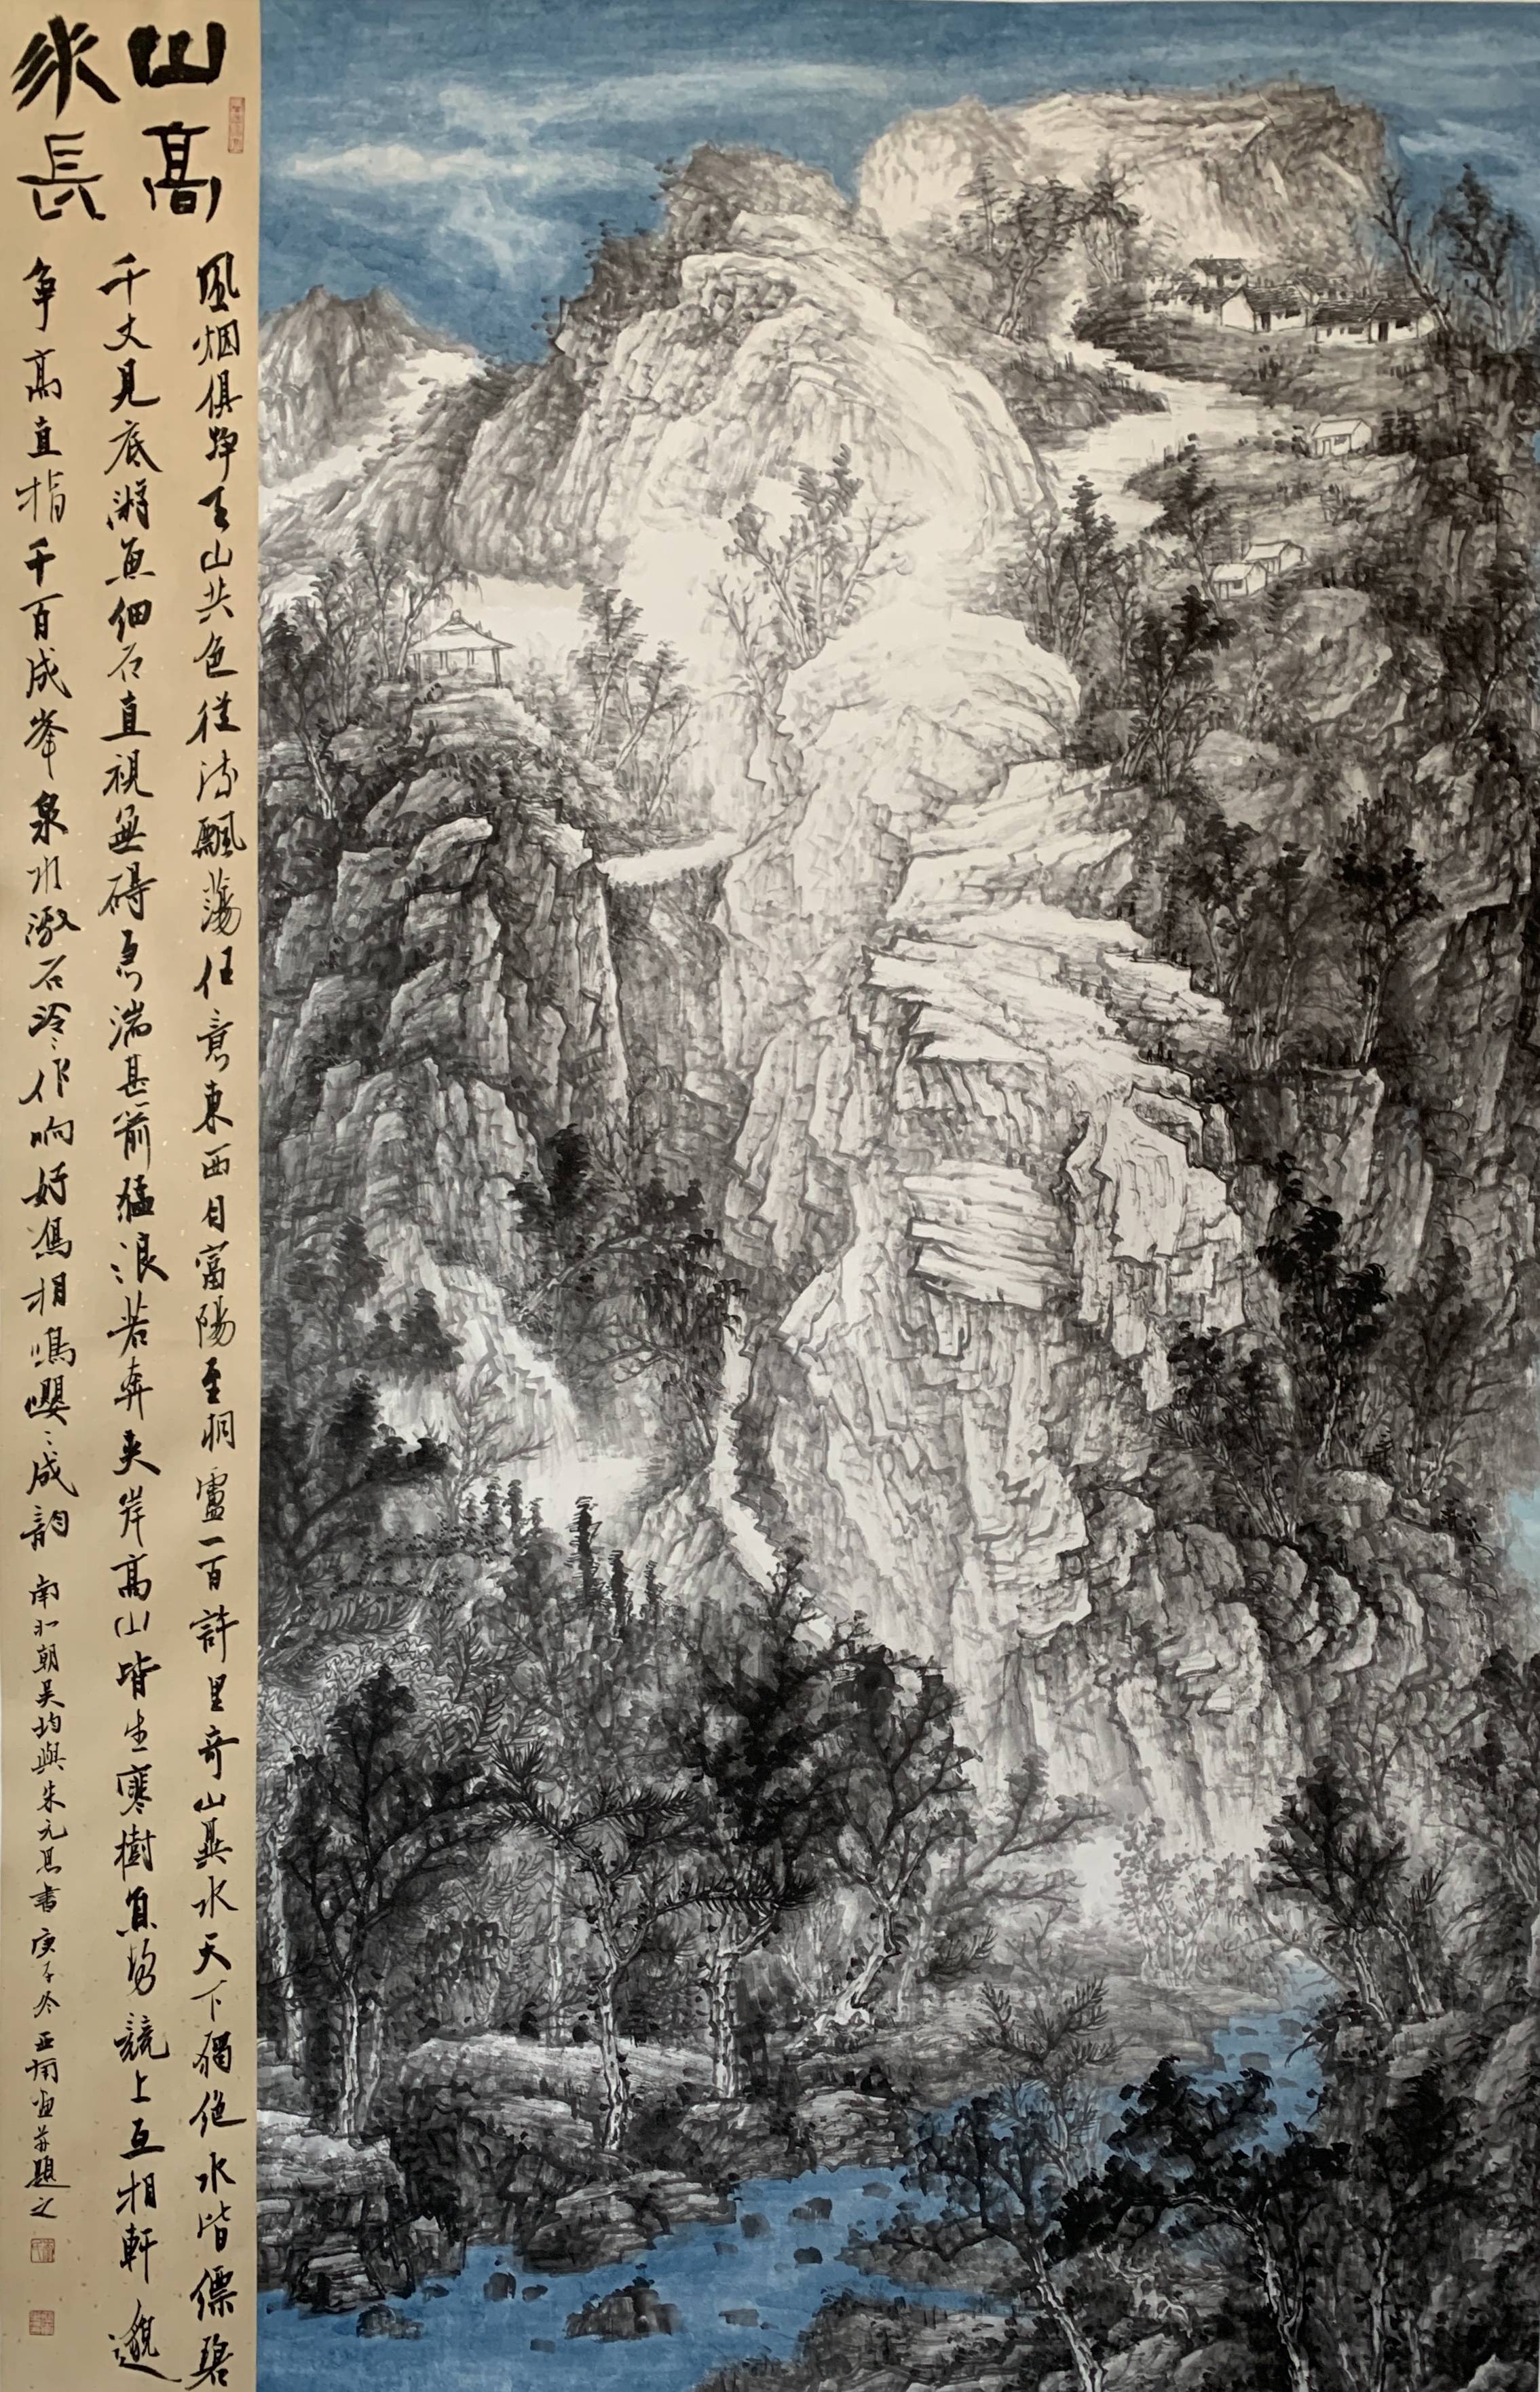 山高
水長
風烟俱净天山共色從流飄蕩任意東西自富陽至桐廬一百許里奇山異水天下獨絶水皆縹碧
千丈見底游魚細石直視無碍急湍甚箭猛浪若奔夾岸高山皆生寒樹負勢競上互相軒邈
争高直指千百成峯泉水激石泠〻作响好鳥相鳴嚶〻成韵 南北朝吴均與朱元思書 庚子冬 画并題之